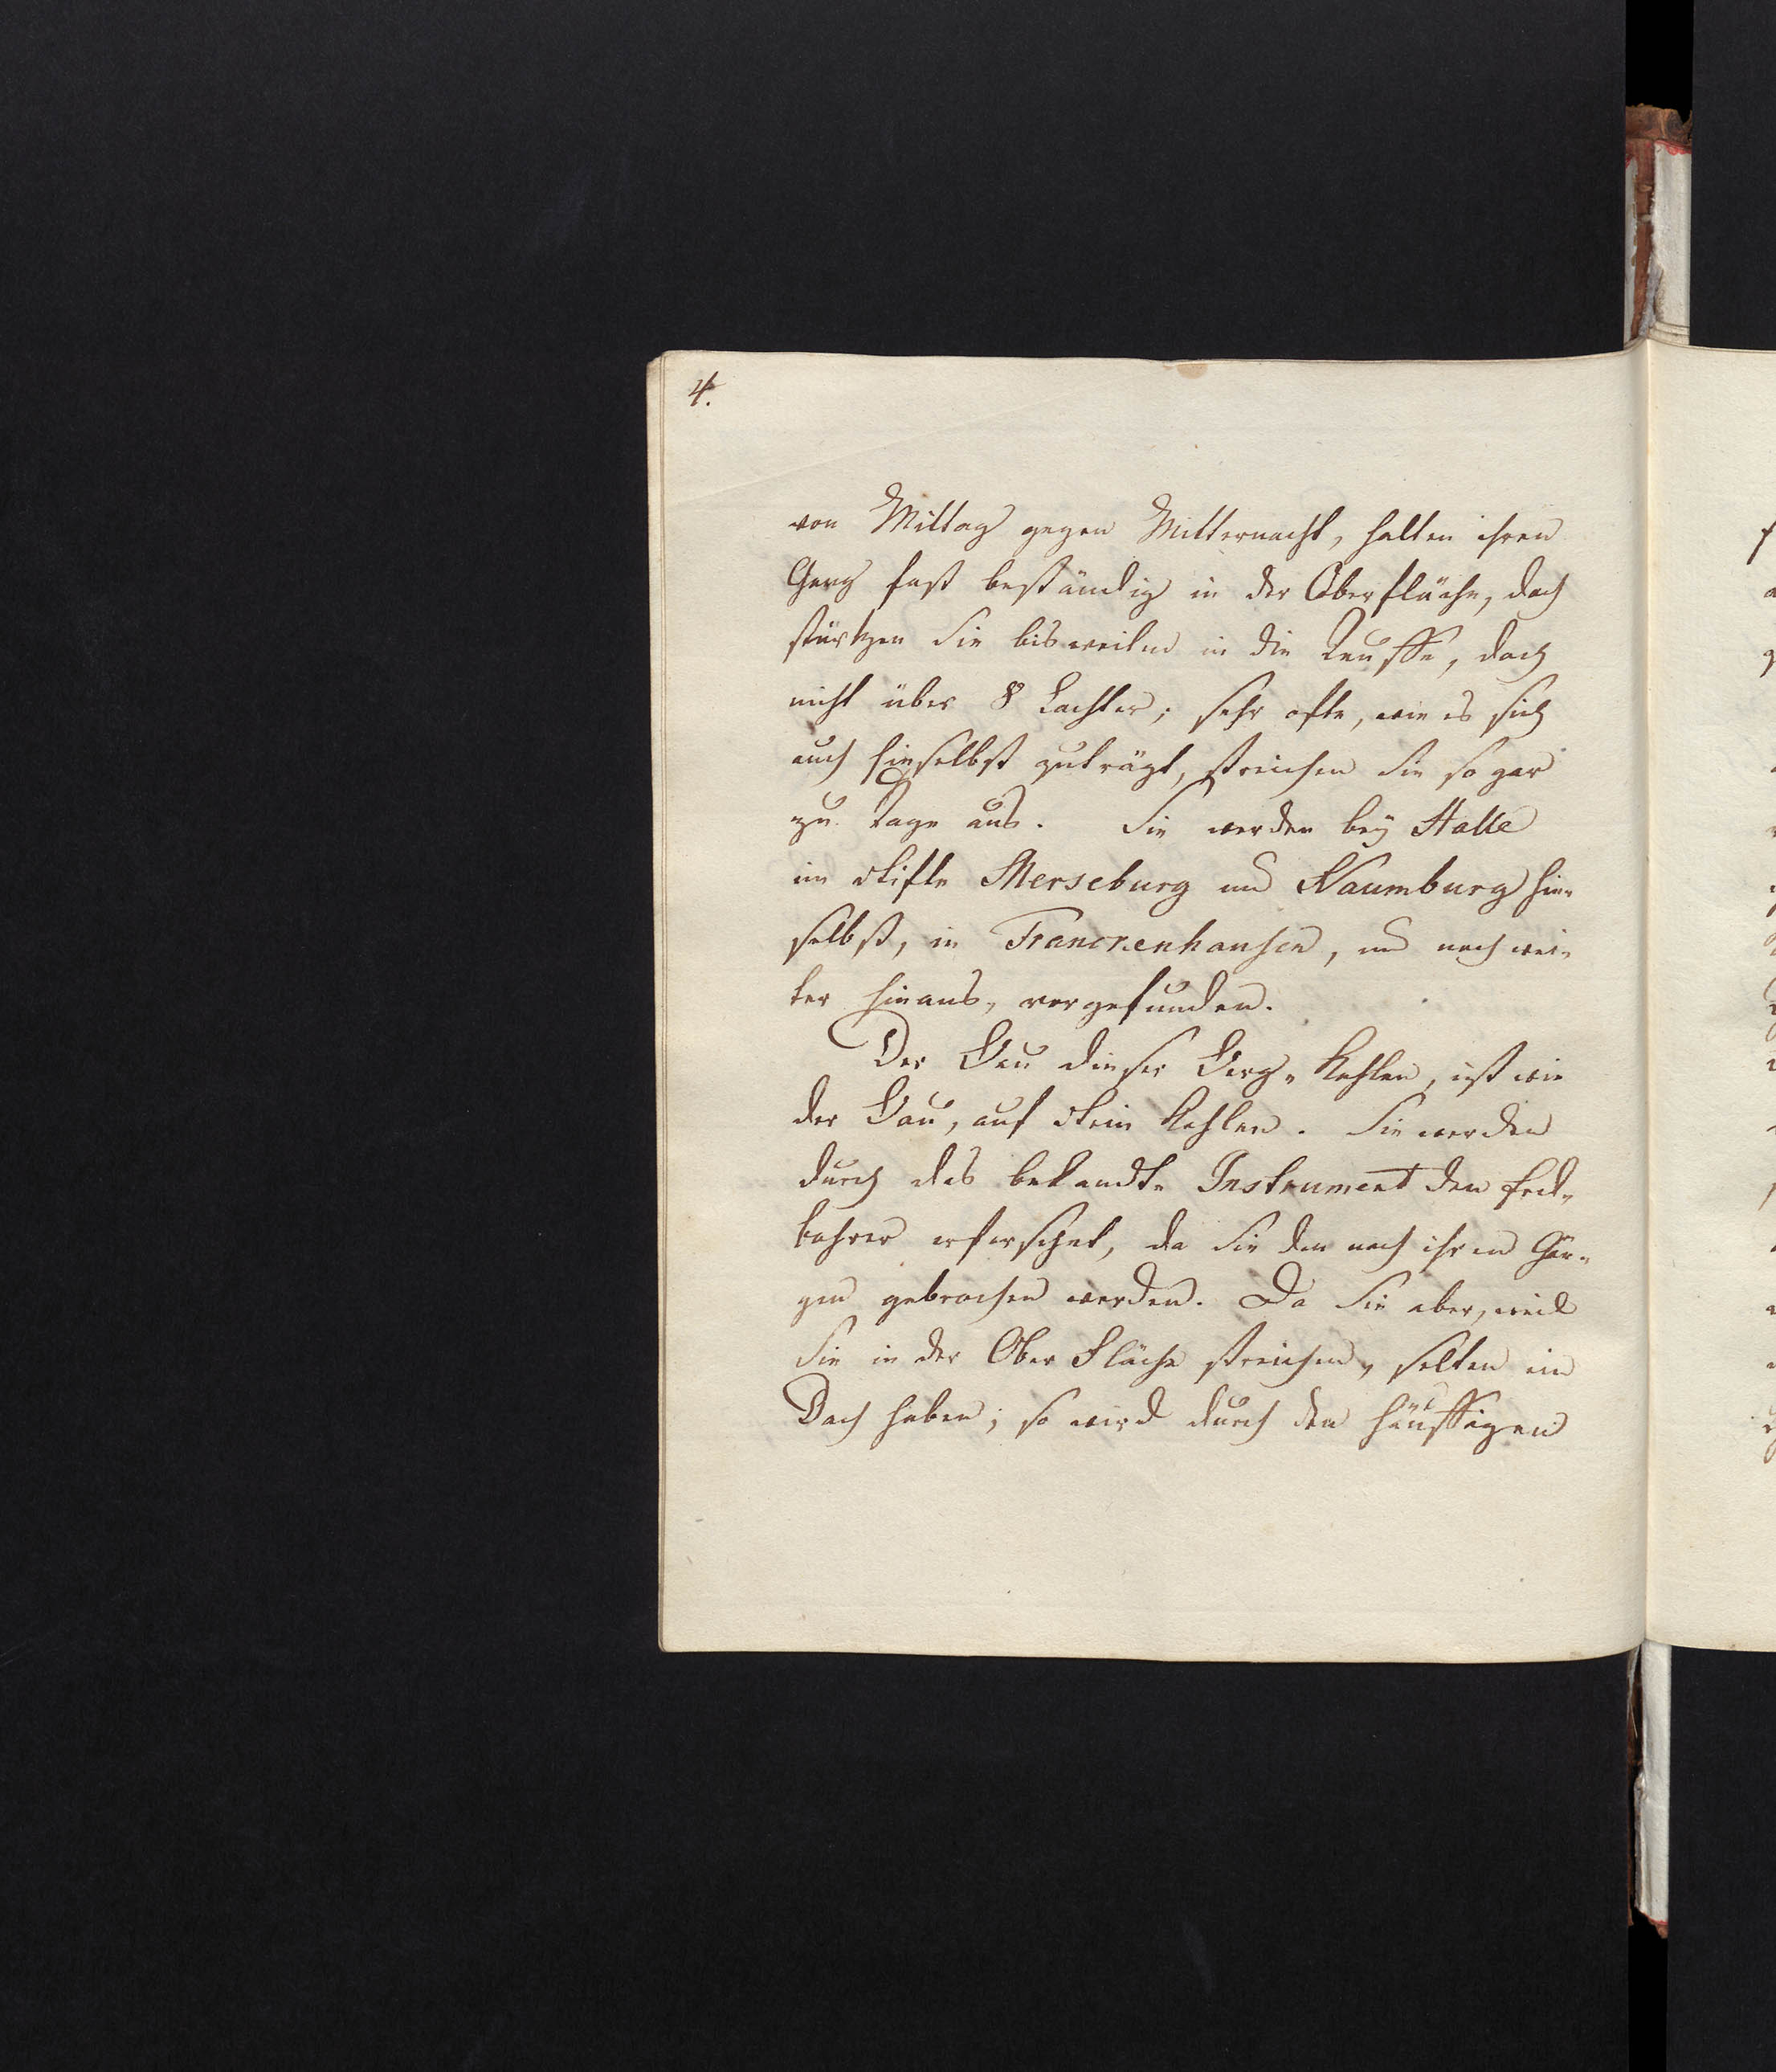 4.
von Mittag gegen Mitternacht, halten ihren
Gang fast beständig in der Oberfläche, doch
stürtzen sie bisweilen in die Teuffe, doch
nicht über 8 Lachter; sehr ofte, wie es sich
auch hieselbst zuträgt, streichen sie so gar
zu Tage aus. Sie werden bey Halle
im Stifte Merseburg und Naumburg hie-
selbst, in Franckenhausen, und noch wei-
ter hinaus, vorgefunden.
Der Bau dieser Berg-Kohlen, ist wie
der Bau, auf Stein Kohlen. Sie werden
durch das bekandte Instrument den Erd-
bohrer erforschet, da sie den nach ihren Gän-
gen gebrochen werden. Da sie aber, weil
sie in der Ober Fläche streichen, selten ein
Dach haben; so wird durch den häuffigen